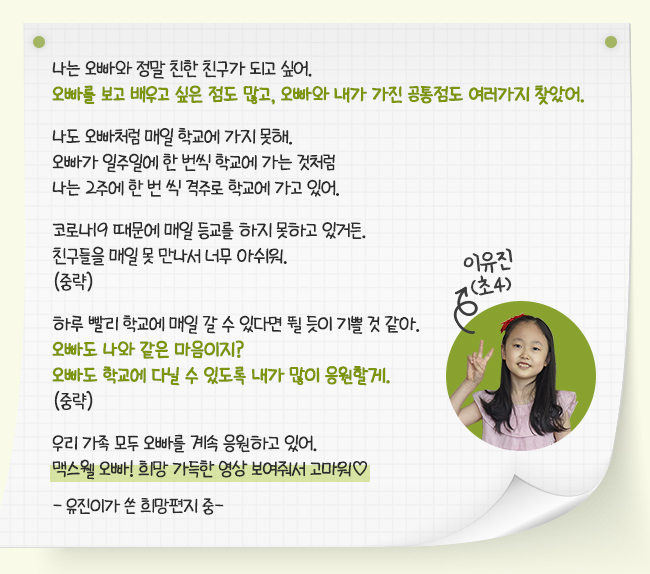 나는 오빠와 정말 친한 친구가 되고 싶어.
오빠를 보고 배우고 싶은 점도 많고, 오빠와 내가 가진 공통점도 여러가지 찾았어.
나도 오빠처럼 매일 학교에 가지 못해.
오빠가 일주일에 한 번씩 학교에 가는 것처럼
나는 2주에 한 번 씩 격주로 학교에 가고 있어.
코로나19 때문에 매일 등교를 하지 못하고 있거든.
친구들을 매일 못 만나서 너무 아쉬워.
(중략)
하루 빨리 학교에 매일 갈 수 있다면 뛸 듯이 기쁠 것 같아.
오빠도 나와 같은 마음이지?
오빠도 학교에 다닐 수 있도록 내가 많이 응원할게.
(중략)
우리 가족 모두 오빠를 계속 응원하고 있어.
맥스웰 오빠! 희망 가득한 영상 보여줘서 고마워♡
- 유진이가 쓴 희망편지 중-
이유진
(초4)